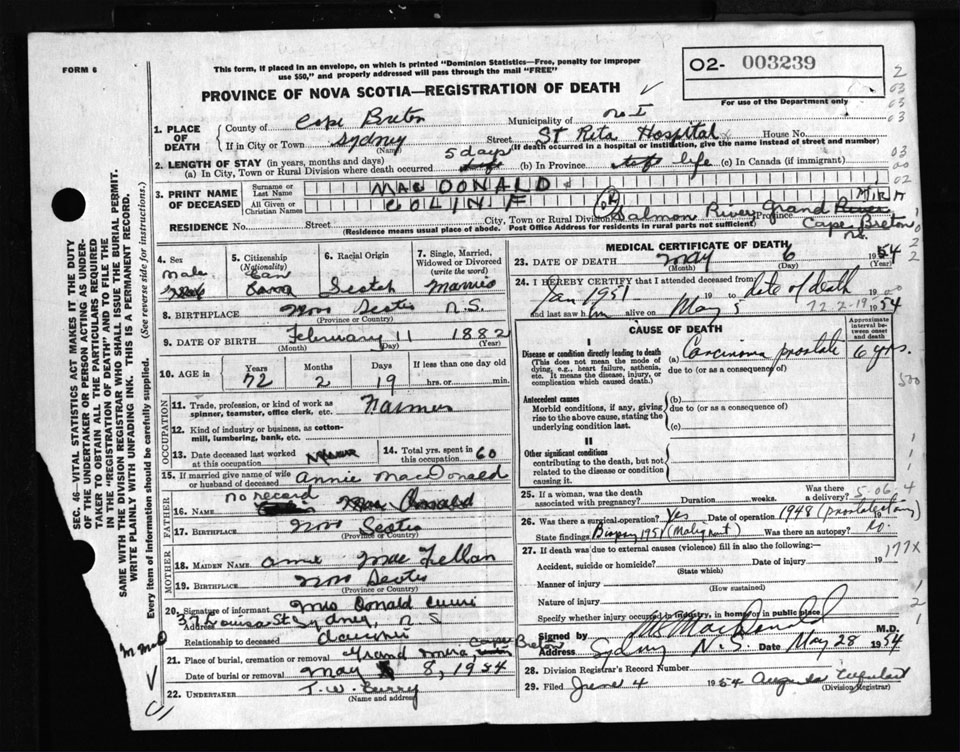 FORM 6
This form, if placed in an envelope, on which is printed "Dominion Statistics—Free, penalty for improper
use $50," and properly addressed will pass through the mail "FREE"
PROVINCE OF NOVA SCOTIA—REGISTRATION OF DEATH
02- 003239
For use of the Department only
1. PLACE OF DEATH County of Cape Breton Municipality of No. I
If in City or Town Sydney (Name) Street St Rita Hospital House No.
(If death occurred in a hospital or institution, give the name instead of street and number)
2. LENGTH OF STAY (in years, months and days)
(a) In City, Town or Rural Division where death occurred 5 days (b) In Province life (c) In Canada (if immigrant)
3. PRINT NAME OF DECEASED
Surname or Last Name MACDONALD
All Given or Christian Names COLIN F
RESIDENCE No. Street City, Town or Rural Division Salmon River Grand River Mira Province Cape Breton N.S.
(Residence means usual place of abode. Post Office Address for residents in rural parts not sufficient)
4. Sex male
5. Citizenship (Nationality) Can
6. Racial Origin Scotch
7. Single, Married, Widowed or Divorced (write the word) Married
8. BIRTHPLACE Nova Scotia N.S.
(Province or Country)
9. DATE OF BIRTH February 11 1882
(Month) (Day) (Year)
10. AGE in Years 72 Months 2 Days 19 If less than one day old hrs. or min.
OCCUPATION
11. Trade, profession, or kind of work as spinner, teamster, office clerk, etc. Farmer
12. Kind of industry or business, as cotton-mill, lumbering, bank, etc.
13. Date deceased last worked at this occupation
14. Total yrs. spent in this occupation 60
15. If married give name of wife or husband of deceased Annie MacDonald
FATHER
16. NAME no record MacDonald
17. BIRTHPLACE Nova Scotia
(Province or Country)
MOTHER
18. MAIDEN NAME Annie
19. BIRTHPLACE Nova Scotia
(Province or Country)
20. Signature of informant Mrs Donald
Address 37 Louisa St Sydney, N S
Relationship to deceased
21. Place of burial, cremation or removal Grand Mira Cape Breton
Date of burial or removal May 8, 1954
22. UNDERTAKER T. W. Curry
(Name and address)
MEDICAL CERTIFICATE OF DEATH
23. DATE OF DEATH May 6 1954
(Month) (Day) (Year)
24. I HEREBY CERTIFY that I attended deceased from
Jan 1951 19 to date of death
and last saw him alive on May 5 1954
72-2-19
CAUSE OF DEATH
Approximate interval between onset and death
I
Disease or condition directly leading to death (a) Carcinoma prostate 6 yrs.
(This does not mean the mode of dying, e.g., heart failure, asthenia, etc. It means the disease, injury, or complication which caused death.)
due to (or as a consequence of)
Antecedent causes (b)
Morbid conditions, if any, giving rise to the above cause, stating the underlying condition last.
due to (or as a consequence of)
(c)
II
Other significant conditions
contributing to the death, but not related to the disease or condition causing it.
25. If a woman, was the death associated with pregnancy? Duration weeks. Was there a delivery?
26. Was there a surgical operation? Yes Date of operation 1948 (prostatectomy) 19
State findings Biopsy 1951 (Malignant) Was there an autopsy? no
27. If death was due to external causes (violence) fill in also the following:—
Accident, suicide or homicide? Date of injury 19 177X
(State which)
Manner of injury
(How sustained)
Nature of injury
Specify whether injury occurred in industry, in home or in public place
Signed by MacDonald M.D.
Address Sydney N.S. Date May 28 1954
28. Division Registrar's Record Number
29. Filed June 4 1954
(Division Registrar)
SEC. 46—VITAL STATISTICS ACT MAKES IT THE DUTY
OF THE UNDERTAKER OR PERSON ACTING AS UNDER-
TAKER TO OBTAIN ALL THE PARTICULARS REQUIRED
IN THE "REGISTRATION OF DEATH" AND TO FILE THE
SAME WITH THE DIVISION REGISTRAR WHO SHALL ISSUE THE BURIAL PERMIT.
WRITE PLAINLY WITH UNFADING INK. THIS IS A PERMANENT RECORD.
Every item of information should be carefully supplied. (See reverse side for instructions.)